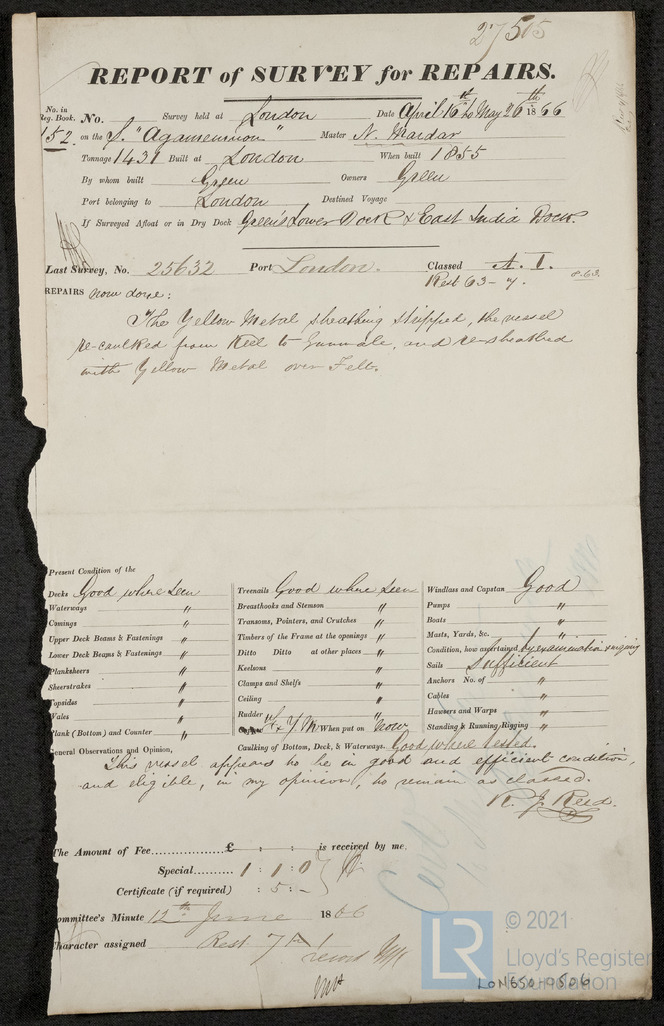 27505
REPORT of SURVEY for REPAIRS.
No. in Reg. Book. No. Survey held at London Date April 16th to May 26th 1866
152 on the S. "Agamemnon" Master N.
Tonnage 1431 Built at London When built 1855
By whom built Green Owners Green
Port belonging to London Destined Voyage
If Surveyed Afloat or in Dry Dock Green's Lower Dock & East India Dock.
Last Survey, No. 25632 Port London. Classed A. 1.
Rest 63-7. 8.63
REPAIRS now done:
The Yellow Metal sheathing stripped, the vessel
re-caulked from Keel to Gunwale, and re-sheathed
with Yellow Metal over Felt.
Present Condition of the
Decks Good where seen
Waterways "
Comings "
Upper Deck Beams & Fastenings "
Lower Deck Beams & Fastenings "
Planksheers "
Sheerstrakes "
Topsides "
Wales "
Plank (Bottom) and Counter "
Treenails Good where seen
Breasthooks and Stemson "
Transoms, Pointers, and Crutches "
Timbers of the Frame at the openings "
Ditto Ditto at other places "
Keelsons "
Clamps and Shelfs "
Ceiling "
Rudder "
Copper F & Y.M. When put on now
Caulking of Bottom, Deck, & Waterways. Good where tested.
Windlass and Capstan Good
Pumps "
Boats "
Masts, Yards, &c. "
Condition, how ascertained by examination &
Sails Sufficient
Anchors No. of "
Cables "
Hawsers and Warps "
Standing & Running Rigging "
General Observations and Opinion,
This vessel appears to be in good and efficient condition,
and eligible, in my opinion, to remain as classed.
R. J. Reed.
The Amount of Fee.................£ : : is received by me,
Special.......... 1 : 1 : 0
Certificate (if required) : 5 : -
Committee's Minute 12th June 1866
Character assigned Rest 7 A 1
© 2021
LR Lloyd's Register
Foundation
LON650-0506